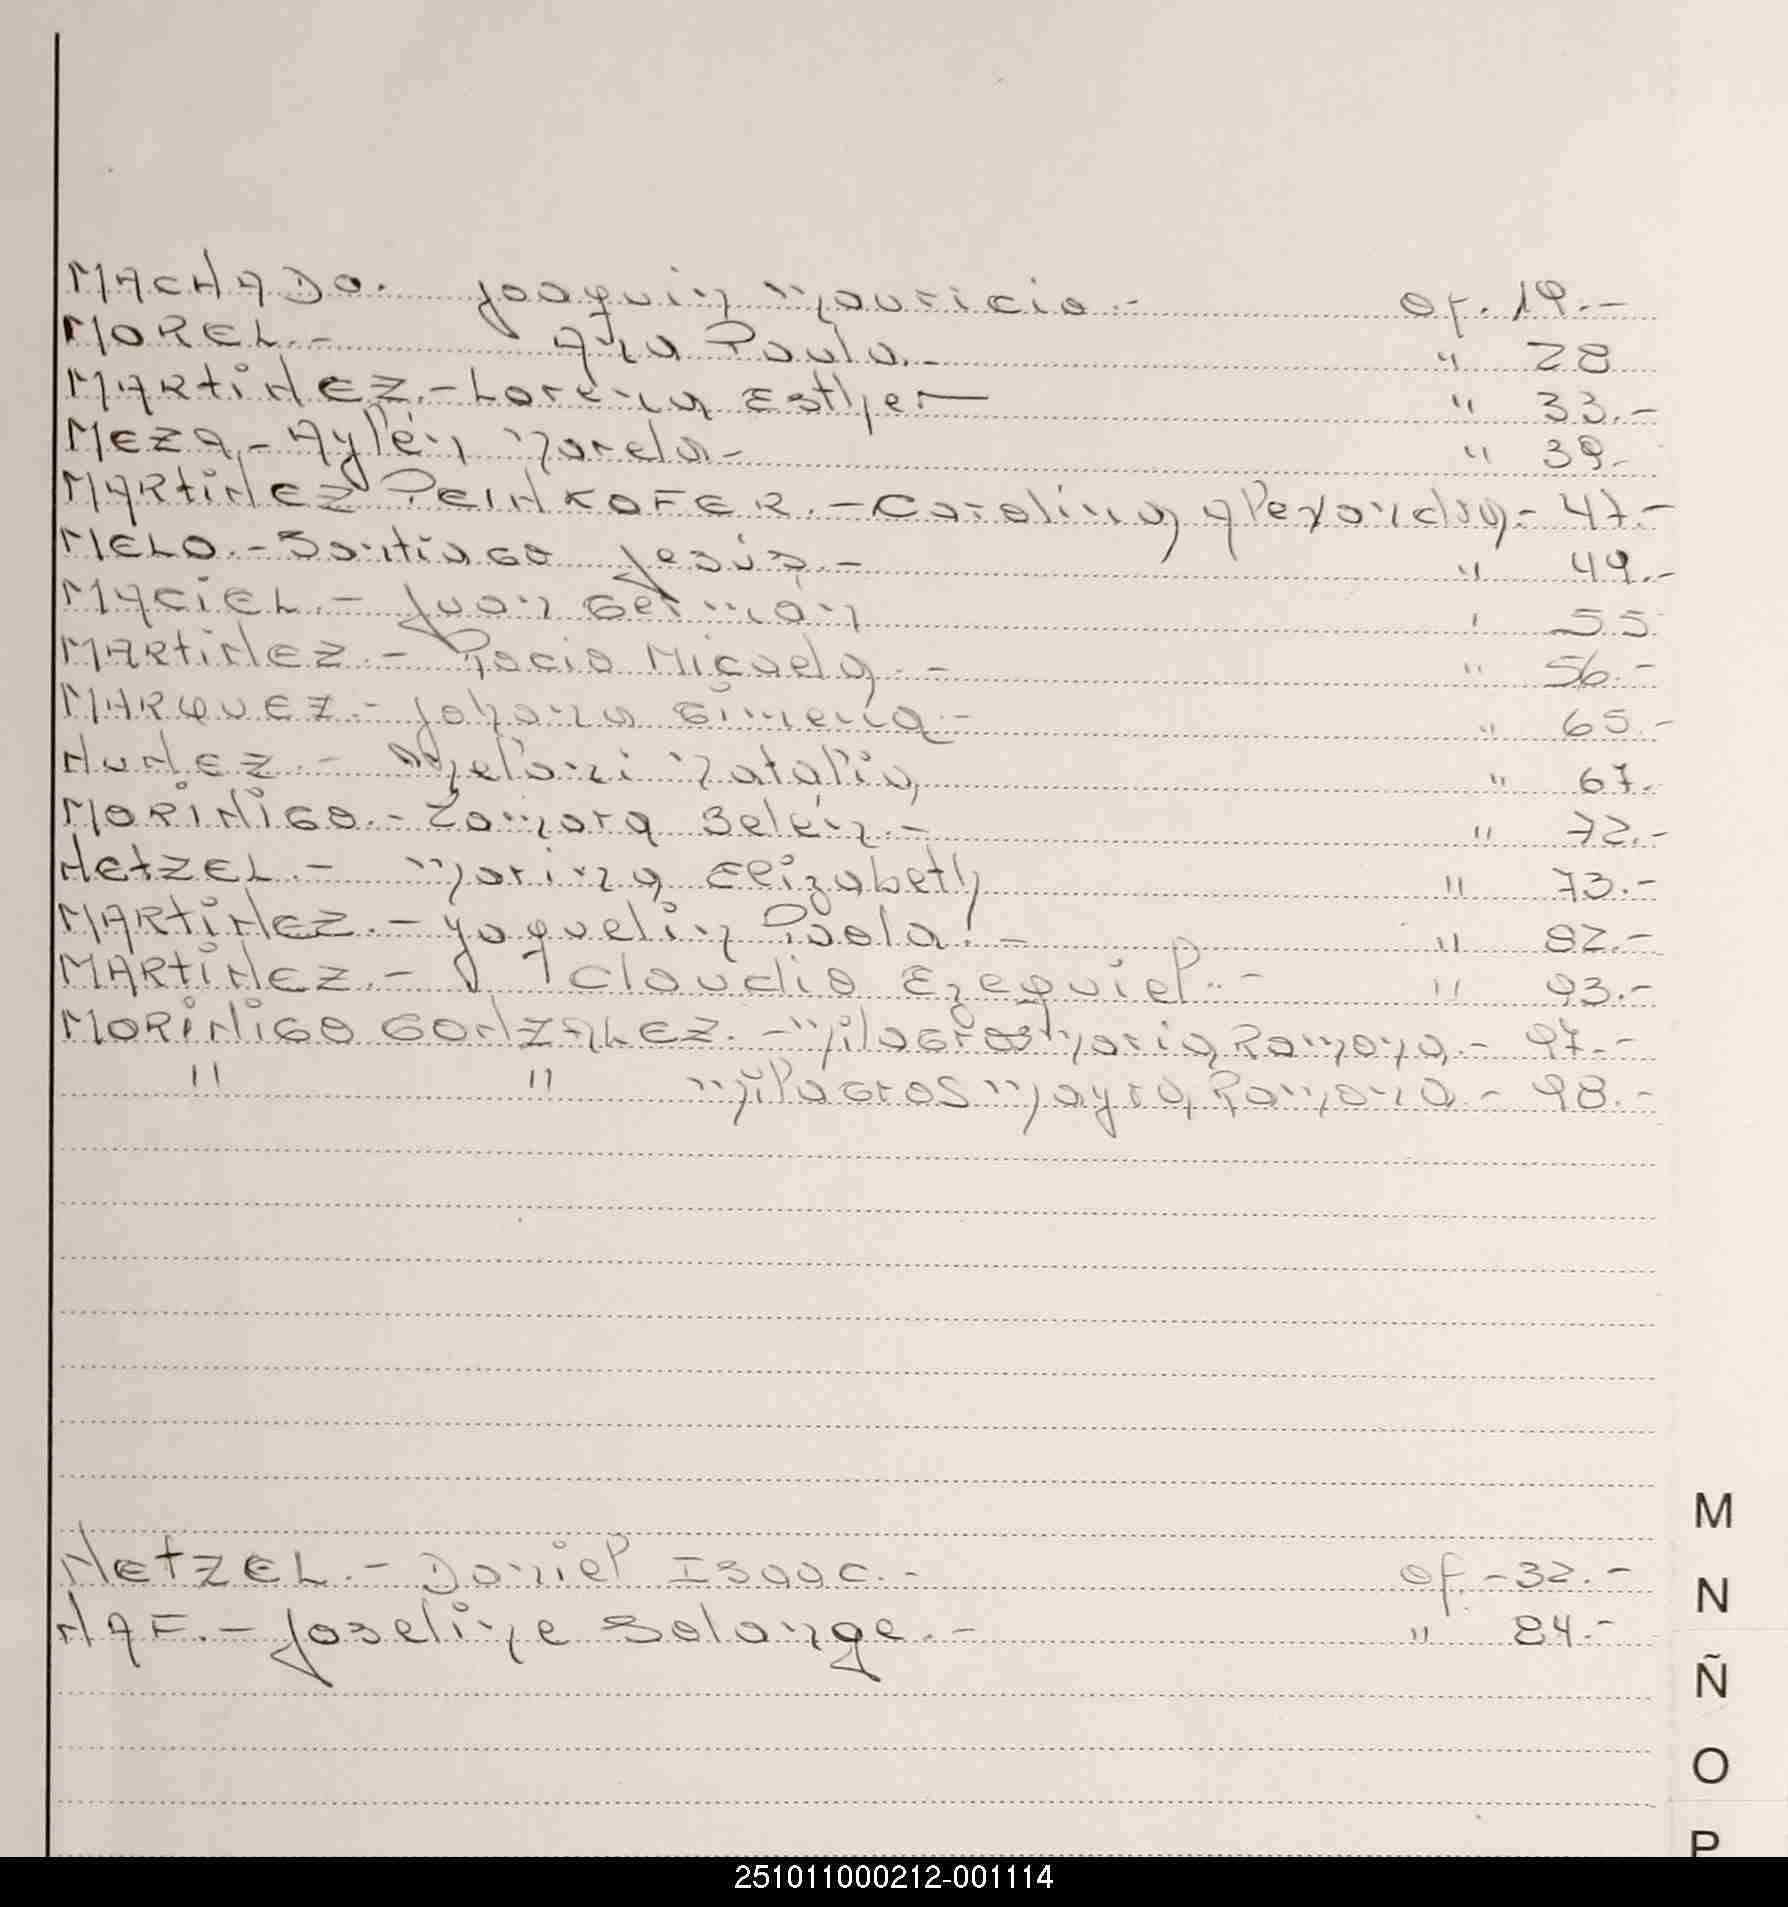 MACHADO. Joaquin Mauricio.- of. 19.-
MOREL.- Ana Paula.- " 28
MARTINEZ.- Lorena Esther " 33.-
MEZA.- Aylén Marela.- " 39.-
MARTINEZ PEINKOFER.- Carolina Alexandra.- 47.-
MELO.- Santiago Jesús.- " 49.-
MACIEL.- Juan Germán ' 55
MARTINEZ.- Rocio Micaela.- " 56.-
MARQUEZ.- Johana Gimena.- " 65.-
NUNEZ.- Melani Natalia " 67.-
MORINIGO.- Zamara Belén.- " 72.-
NETZEL.- Marina Elizabeth " 73.-
MARTINEZ.- Yaquelin Paola.- " 82.-
MARTINEZ.- Claudio Ezequiel.- " 93.-
MORINIGO GONZALEZ.- Milagros Maria Ramona.- 97.-
" " Milagros Mayra Ramona.- 98.-
NETZEL.- Daniel Isaac.- of.- 32.-
NAF.- Joseline Solange.- " 84.-
M
N
Ñ
O
P
251011000212-001114